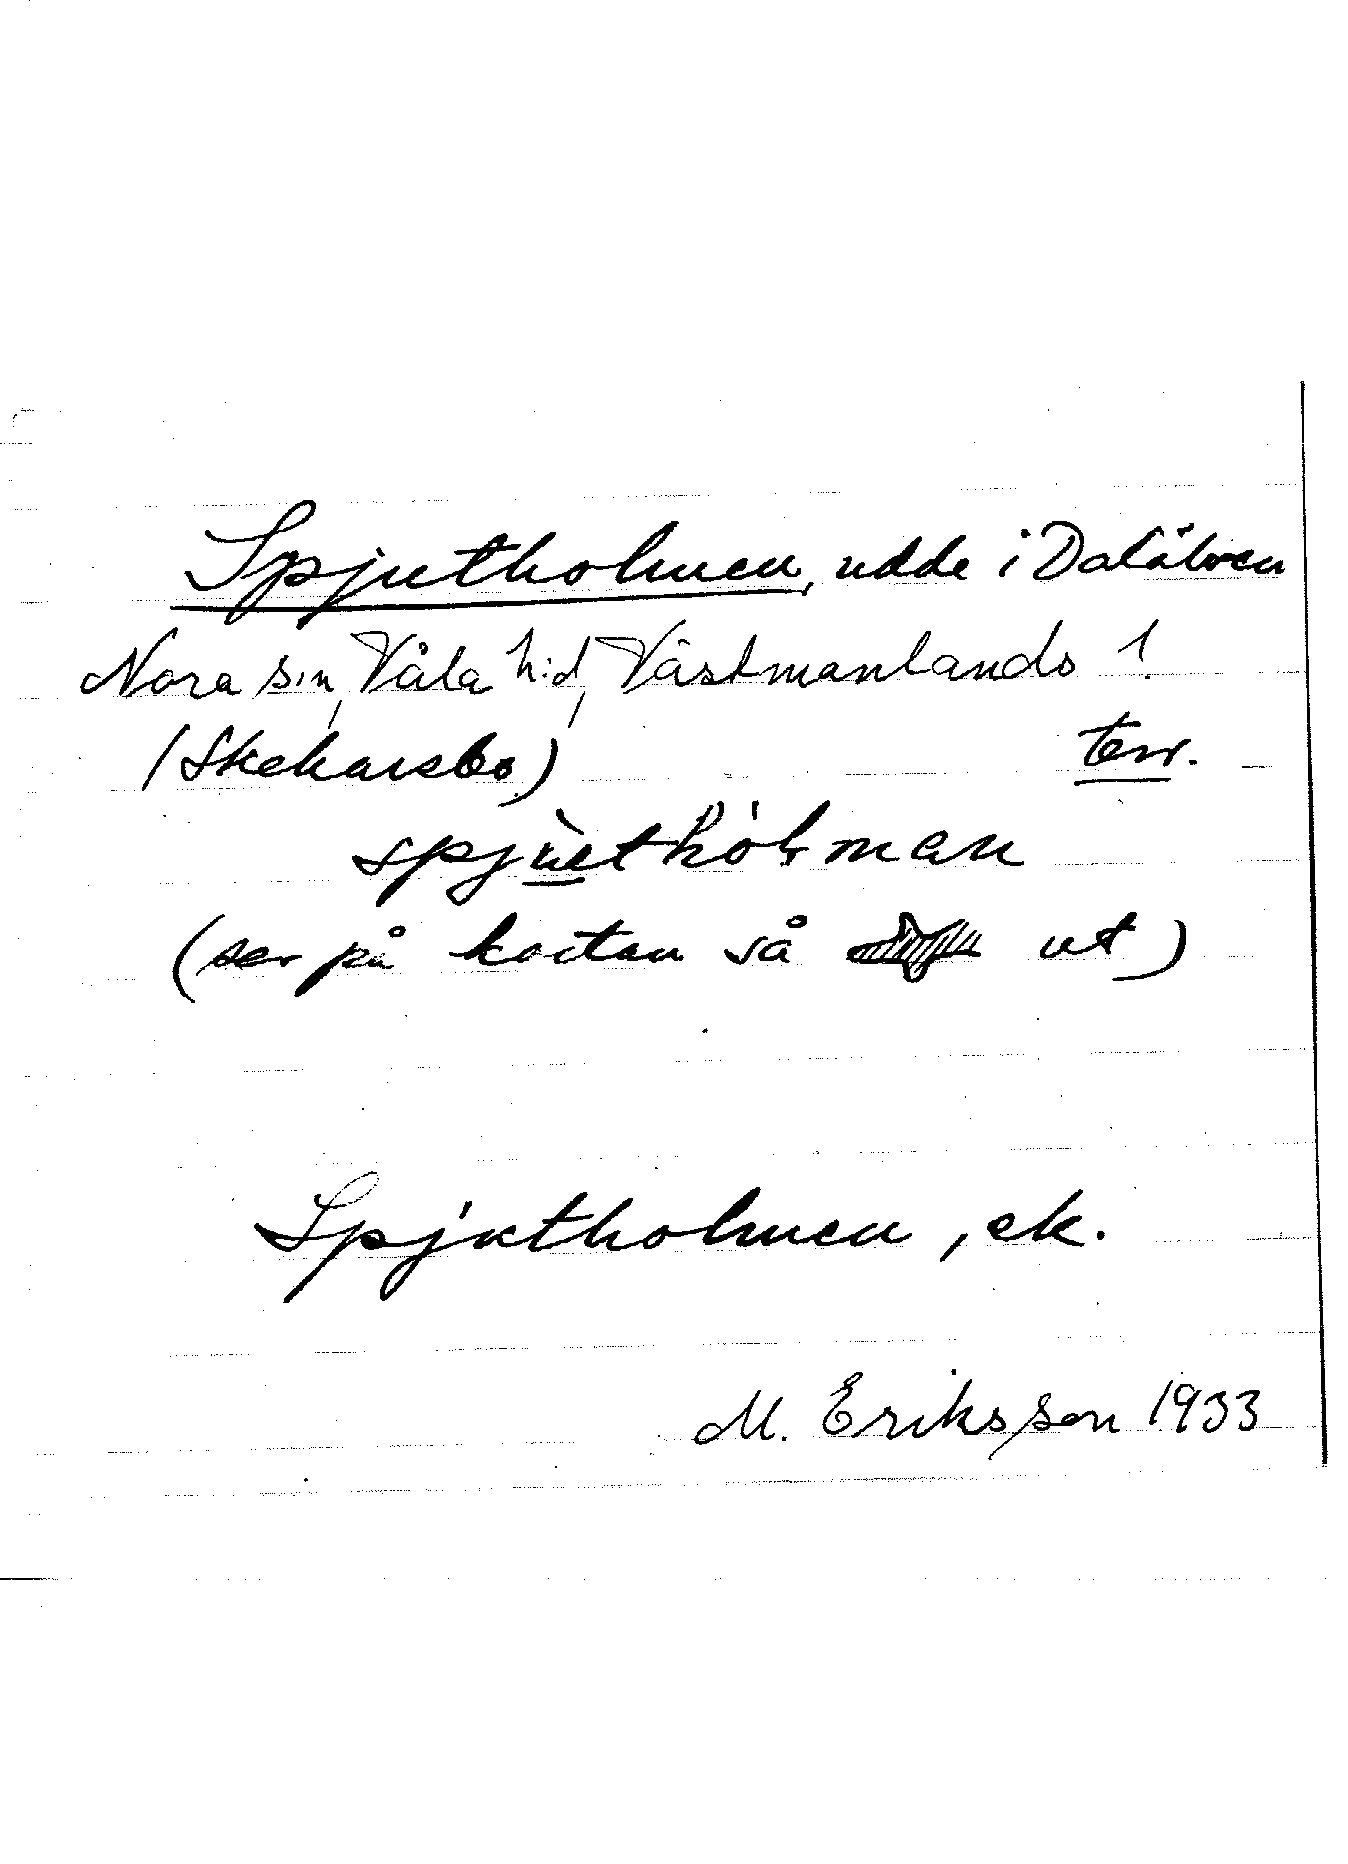 Spjutholmen, udde i Dalälven
Nora s:n, Våla h:d, Västmanlands l.
(Skekarsbo) terr.
spjùethólman
(ser på kartan så ut)
Spjutholmen, ek.
M. Eriksson 1933